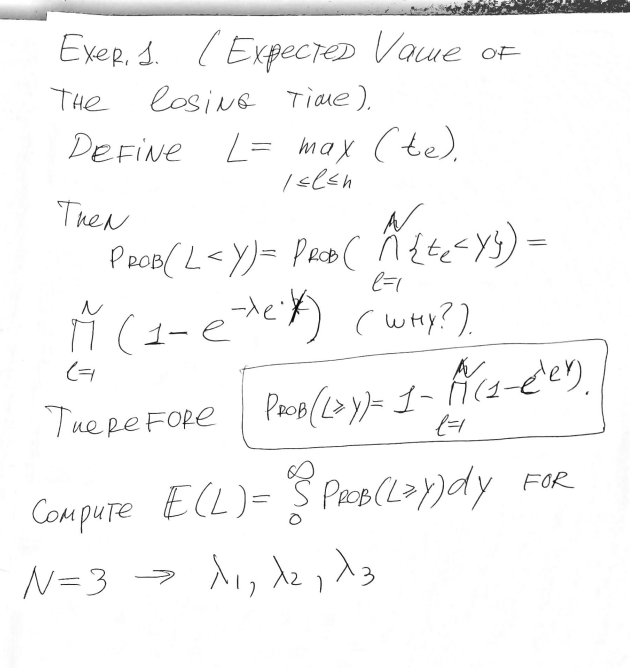 EXER. 1. (EXPECTED VALUE OF
THE LOSING TIME).
DEFINE L = max (tℓ).
1≤ℓ≤n
THEN
PROB(L<Y) = PROB( ∩ {tℓ<Y}) =
N
ℓ=1
N
∏ (1-e^{-λℓ·Y}) (WHY?).
ℓ=1
THEREFORE PROB(L≥Y) = 1 - ∏_{ℓ=1}^{N} (1-e^{λℓY}).
COMPUTE E(L) = ∫_0^∞ PROB(L≥Y)dy FOR
N=3 → λ1, λ2, λ3